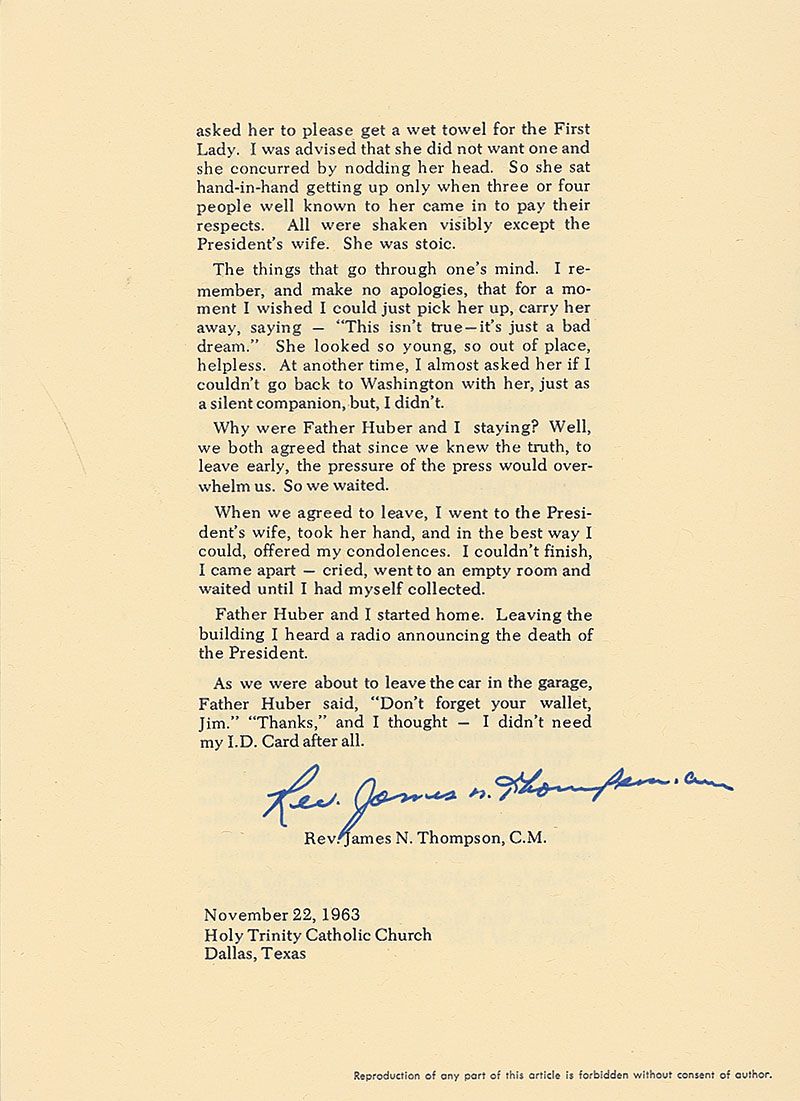 asked her to please get a wet towel for the First
Lady. I was advised that she did not want one and
she concurred by nodding her head. So she sat
hand-in-hand getting up only when three or four
people well known to her came in to pay their
respects. All were shaken visibly except the
President's wife. She was stoic.
The things that go through one's mind. I re-
member, and make no apologies, that for a mo-
ment I wished I could just pick her up, carry her
away, saying — “This isn't true—it's just a bad
dream.” She looked so young, so out of place,
helpless. At another time, I almost asked her if I
couldn't go back to Washington with her, just as
a silent companion, but, I didn't.
Why were Father Huber and I staying? Well,
we both agreed that since we knew the truth, to
leave early, the pressure of the press would over-
whelm us. So we waited.
When we agreed to leave, I went to the Presi-
dent's wife, took her hand, and in the best way I
could, offered my condolences. I couldn't finish,
I came apart — cried, went to an empty room and
waited until I had myself collected.
Father Huber and I started home. Leaving the
building I heard a radio announcing the death of
the President.
As we were about to leave the car in the garage,
Father Huber said, “Don't forget your wallet,
Jim.” “Thanks,” and I thought — I didn't need
my I.D. Card after all.
Rev. James N. Thompson, cm
Rev. James N. Thompson, C.M.
November 22, 1963
Holy Trinity Catholic Church
Dallas, Texas
Reproduction of any part of this article is forbidden without consent of author.